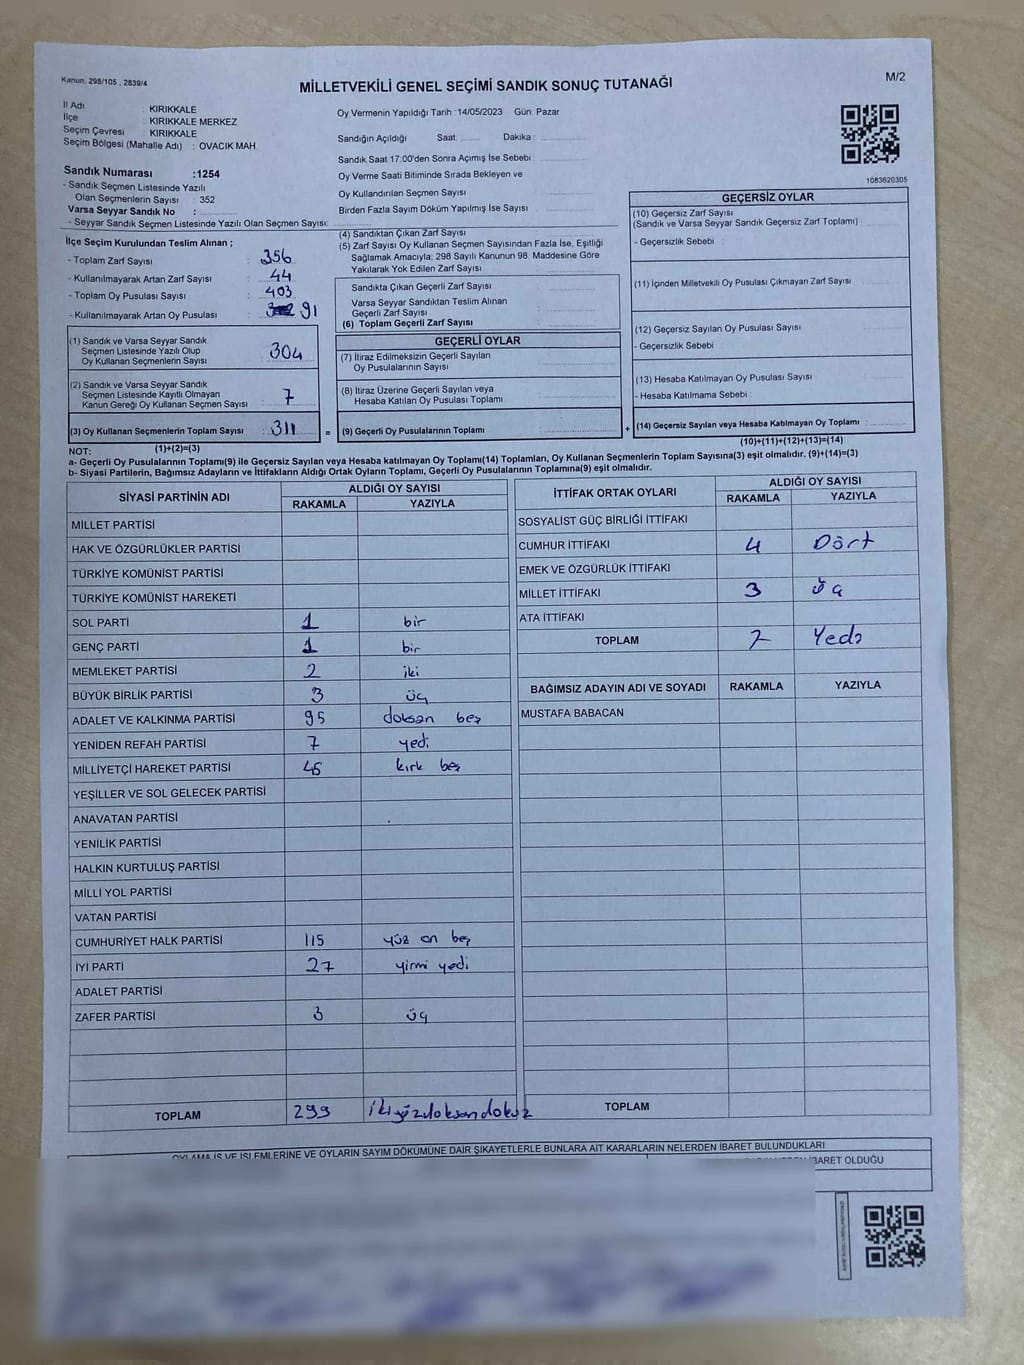 Kanun, 298/105 , 2839/4
MİLLETVEKİLİ GENEL SEÇİMİ SANDIK SONUÇ TUTANAĞI
M/2
İl Adı : KIRIKKALE
İlçe : KIRIKKALE MERKEZ
Seçim Çevresi : KIRIKKALE
Seçim Bölgesi (Mahalle Adı) : OVACIK MAH.
Sandık Numarası :1254
- Sandık Seçmen Listesinde Yazılı
Olan Seçmenlerin Sayısı : 352
Varsa Seyyar Sandık No :
- Seyyar Sandık Seçmen Listesinde Yazılı Olan Seçmen Sayısı:
Oy Vermenin Yapıldığı Tarih :14/05/2023 Gün: Pazar
Sandığın Açıldığı Saat: Dakika :
Sandık Saat 17:00'den Sonra Açımış İse Sebebi :
Oy Verme Saati Bitiminde Sırada Bekleyen ve
Oy Kullandırılan Seçmen Sayısı :
Birden Fazla Sayım Döküm Yapılmış İse Sayısı :
1083620305
İlçe Seçim Kurulundan Teslim Alınan ;
- Toplam Zarf Sayısı : 356
- Kullanılmayarak Artan Zarf Sayısı : 44
- Toplam Oy Pusulası Sayısı : 403
- Kullanılmayarak Artan Oy Pusulası : 91
(1) Sandık ve Varsa Seyyar Sandık
Seçmen Listesinde Yazılı Olup
Oy Kullanan Seçmenlerin Sayısı : 304
(2) Sandık ve Varsa Seyyar Sandık
Seçmen Listesinde Kayıtlı Olmayan
Kanun Gereği Oy Kullanan Seçmen Sayısı : 7
(3) Oy Kullanan Seçmenlerin Toplam Sayısı : 311
(1)+(2)=(3)
=
(4) Sandıktan Çıkan Zarf Sayısı :
(5) Zarf Sayısı Oy Kullanan Seçmen Sayısından Fazla İse, Eşitliği
Sağlamak Amacıyla; 298 Sayılı Kanunun 98. Maddesine Göre
Yakılarak Yok Edilen Zarf Sayısı :
Sandıkta Çıkan Geçerli Zarf Sayısı :
Varsa Seyyar Sandıktan Teslim Alınan
Geçerli Zarf Sayısı :
(6) Toplam Geçerli Zarf Sayısı :
GEÇERLİ OYLAR
(7) İtiraz Edilmeksizin Geçerli Sayılan
Oy Pusulalarının Sayısı :
(8) İtiraz Üzerine Geçerli Sayılan veya
Hesaba Katılan Oy Pusulası Toplamı :
(9) Geçerli Oy Pusulalarının Toplamı :
+
GEÇERSİZ OYLAR
(10) Geçersiz Zarf Sayısı :
(Sandık ve Varsa Seyyar Sandık Geçersiz Zarf Toplamı)
- Geçersizlik Sebebi :
(11) İçinden Milletvekili Oy Pusulası Çıkmayan Zarf Sayısı :
(12) Geçersiz Sayılan Oy Pusulası Sayısı :
- Geçersizlik Sebebi :
(13) Hesaba Katılmayan Oy Pusulası Sayısı :
- Hesaba Katılmama Sebebi :
(14) Geçersiz Sayılan veya Hesaba Katılmayan Oy Toplamı :
(10)+(11)+(12)+(13)=(14)
NOT:
a- Geçerli Oy Pusulalarının Toplamı(9) ile Geçersiz Sayılan veya Hesaba Katılmayan Oy Toplamı(14) Toplamları, Oy Kullanan Seçmenlerin Toplam Sayısına(3) eşit olmalıdır. (9)+(14)=(3)
b- Siyasi Partilerin, Bağımsız Adayların ve İttifakların Aldığı Ortak Oyların Toplamı, Geçerli Oy Pusulalarının Toplamına(9) eşit olmalıdır.
SİYASİ PARTİNİN ADI ALDIĞI OY SAYISI
RAKAMLA YAZIYLA
MİLLET PARTİSİ
HAK VE ÖZGÜRLÜKLER PARTİSİ
TÜRKİYE KOMÜNİST PARTİSİ
TÜRKİYE KOMÜNİST HAREKETİ
SOL PARTİ 1 bir
GENÇ PARTİ 1 bir
MEMLEKET PARTİSİ 2 iki
BÜYÜK BİRLİK PARTİSİ 3 üç
ADALET VE KALKINMA PARTİSİ 95 doksan beş
YENİDEN REFAH PARTİSİ 7 yedi
MİLLİYETÇİ HAREKET PARTİSİ 45 kırk beş
YEŞİLLER VE SOL GELECEK PARTİSİ
ANAVATAN PARTİSİ
YENİLİK PARTİSİ
HALKIN KURTULUŞ PARTİSİ
MİLLİ YOL PARTİSİ
VATAN PARTİSİ
CUMHURİYET HALK PARTİSİ 115 yüz on beş
İYİ PARTİ 27 yirmi yedi
ADALET PARTİSİ
ZAFER PARTİSİ 3 üç
TOPLAM 299 ikiyüzdoksandokuz
İTTİFAK ORTAK OYLARI ALDIĞI OY SAYISI
RAKAMLA YAZIYLA
SOSYALİST GÜÇ BİRLİĞİ İTTİFAKI
CUMHUR İTTİFAKI 4 Dört
EMEK VE ÖZGÜRLÜK İTTİFAKI
MİLLET İTTİFAKI 3 Üç
ATA İTTİFAKI
TOPLAM 7 Yedi
BAĞIMSIZ ADAYIN ADI VE SOYADI RAKAMLA YAZIYLA
MUSTAFA BABACAN
TOPLAM
OYLAMA İŞ VE İŞLEMLERİNE VE OYLARIN SAYIM DÖKÜMÜNE DAİR ŞİKAYETLERLE BUNLARA AİT KARARLARIN NELERDEN İBARET BULUNDUKLARI
İBARET OLDUĞU